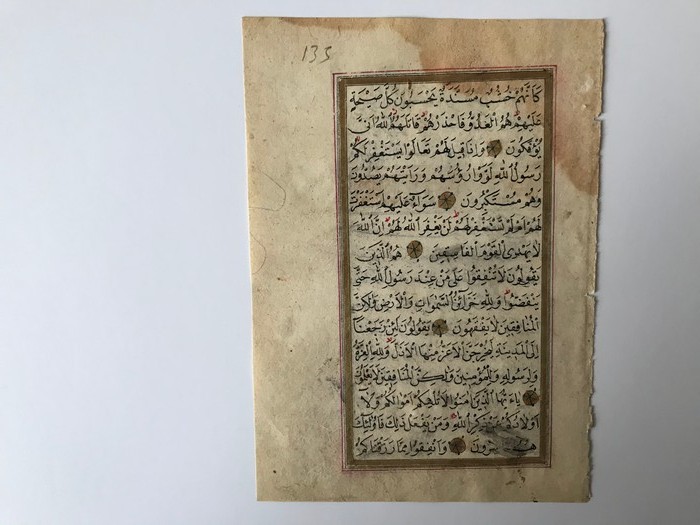 133
كَاَنَّهُمْ خُشُبٌ مُسَنَّدَةٌ يَحْسَبُونَ كُلَّ صَيْحَةٍ
عَلَيْهِمْ هُمُ الْعَدُوُّ فَاحْذَرْهُمْ قَاتَلَهُمُ اللهُ اَنّٰى
يُؤْفَكُونَ وَاِذَا قِيلَ لَهُمْ تَعَالَوْا يَسْتَغْفِرْ لَكُمْ
رَسُولُ اللهِ لَوَّوْا رُؤُسَهُمْ وَرَاَيْتَهُمْ يَصُدُّونَ
وَهُمْ مُسْتَكْبِرُونَ سَوَاءٌ عَلَيْهِمْ اَسْتَغْفَرْتَ
لَهُمْ اَمْ لَمْ تَسْتَغْفِرْ لَهُمْ لَنْ يَغْفِرَ اللهُ لَهُمْ اِنَّ اللهَ
لَا يَهْدِى الْقَوْمَ الْفَاسِقِينَ هُمُ الَّذِينَ
يَقُولُونَ لَا تُنْفِقُوا عَلٰى مَنْ عِنْدَ رَسُولِ اللهِ حَتّٰى
يَنْفَضُّوا وَلِلّٰهِ خَزَائِنُ السَّمٰوَاتِ وَالْاَرْضِ وَلٰكِنَّ
الْمُنَافِقِينَ لَا يَفْقَهُونَ يَقُولُونَ لَئِنْ رَجَعْنَا
اِلَى الْمَدِينَةِ لَيُخْرِجَنَّ الْاَعَزُّ مِنْهَا الْاَذَلَّ وَلِلّٰهِ الْعِزَّةُ
وَلِرَسُولِهِ وَلِلْمُؤْمِنِينَ وَلٰكِنَّ الْمُنَافِقِينَ لَا يَعْلَمُونَ
يَاءَيُّهَا الَّذِينَ اٰمَنُوا لَا تُلْهِكُمْ اَمْوَالُكُمْ وَلَا
اَوْلَادُكُمْ عَنْ ذِكْرِ اللهِ وَمَنْ يَفْعَلْ ذٰلِكَ فَاُولٰئِكَ
هُمُ وَاَنْفِقُوا مِمَّا رَزَقْنَاكُمْ